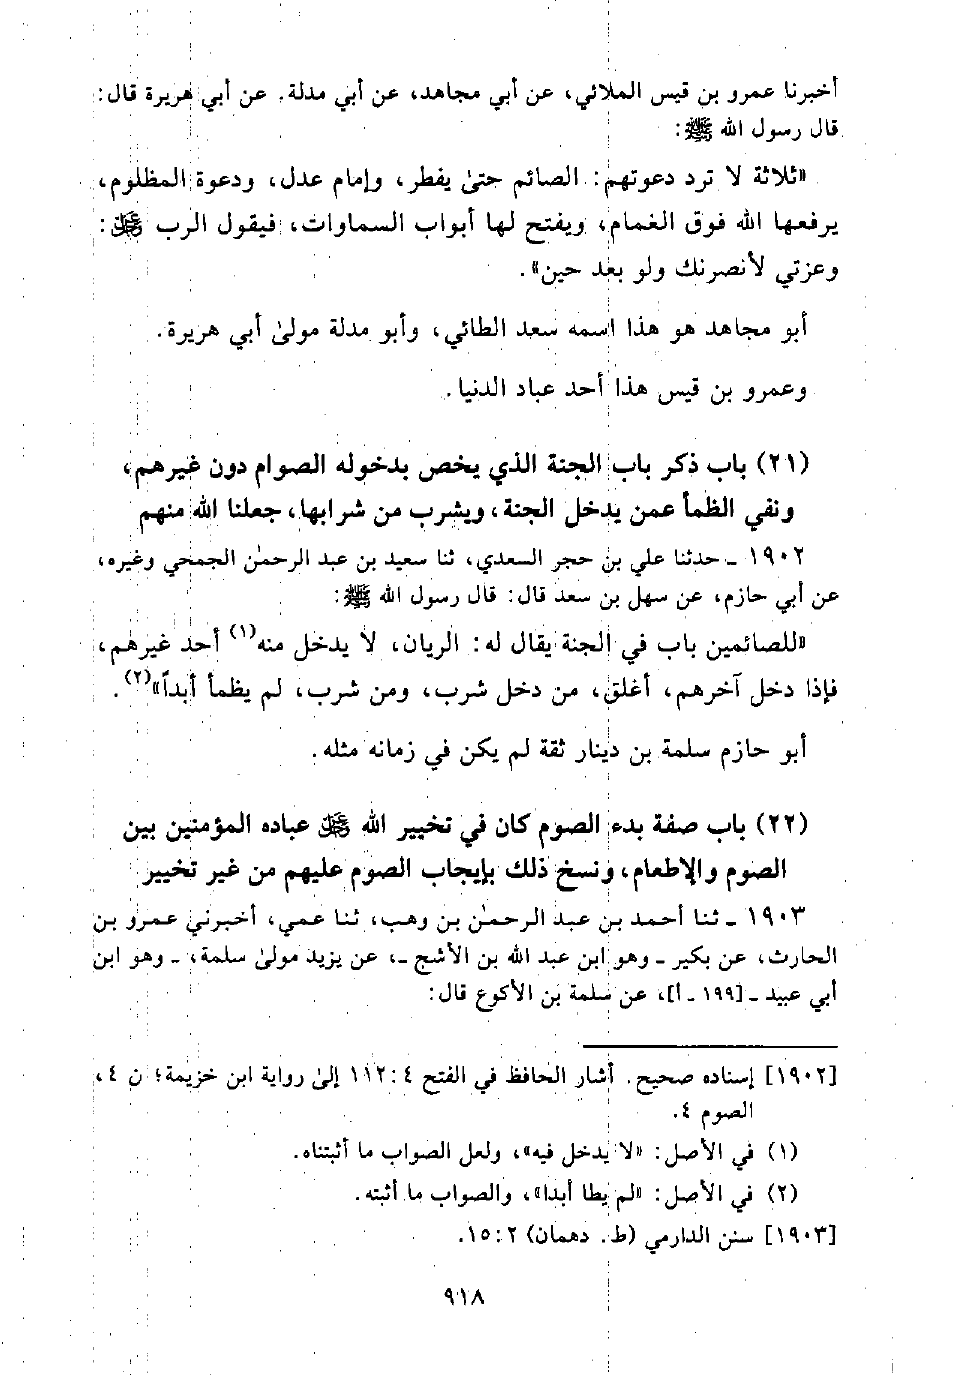 أخبرنا عمرو بن قيس الملائي، عن أبي مجاهد، عن أبي مدلة. عن أبي هريرة قال:
قال رسول الله ﷺ:
«ثلاثة لا ترد دعوتهم: الصائم حتىٰ يفطر، وإمام عدل، ودعوة المظلوم،
يرفعها الله فوق الغمام، ويفتح لها أبواب السماوات، فيقول الرب ﷻ:
وعزتي لأنصرنك ولو بعد حين».
أبو مجاهد هو هذا اسمه سعد الطائي، وأبو مدلة مولىٰ أبي هريرة.
وعمرو بن قيس هذا أحد عباد الدنيا.
(٢١) باب ذكر باب الجنة الذي يخص بدخوله الصوام دون غيرهم،
ونفي الظمأ عمن يدخل الجنة، ويشرب من شرابها، جعلنا الله منهم
١٩٠٢ ـ حدثنا علي بن حجر السعدي، ثنا سعيد بن عبد الرحمٰن الجمحي وغيره،
عن أبي حازم، عن سهل بن سعد قال: قال رسول الله ﷺ:
«للصائمين باب في الجنة يقال له: الريان، لا يدخل منه(١) أحد غيرهم،
فإذا دخل آخرهم، أغلق، من دخل شرب، ومن شرب، لم يظمأ أبداً»(٢).
أبو حازم سلمة بن دينار ثقة لم يكن في زمانه مثله.
(٢٢) باب صفة بدء الصوم كان في تخيير الله ﷻ عباده المؤمنين بين
الصوم والإطعام، ونسخ ذلك بإيجاب الصوم عليهم من غير تخيير
١٩٠٣ ـ ثنا أحمد بن عبد الرحمٰن بن وهب، ثنا عمي، أخبرني عمرو بن
الحارث، عن بكير ـ وهو ابن عبد الله بن الأشج ـ، عن يزيد مولىٰ سلمة، ـ وهو ابن
أبي عبيد ـ [١٩٩ ـ أ]، عن سلمة بن الأكوع قال:
[١٩٠٢] إسناده صحيح. أشار الحافظ في الفتح ٤: ١١٢ إلىٰ رواية ابن خزيمة؛ ن ٤،
الصوم ٤.
(١) في الأصل: «لا يدخل فيه»، ولعل الصواب ما أثبتناه.
(٢) في الأصل: «لم يطا أبدا»، والصواب ما أثبته.
[١٩٠٣] سنن الدارمي (ط. دهمان) ٢: ١٥.
٩١٨